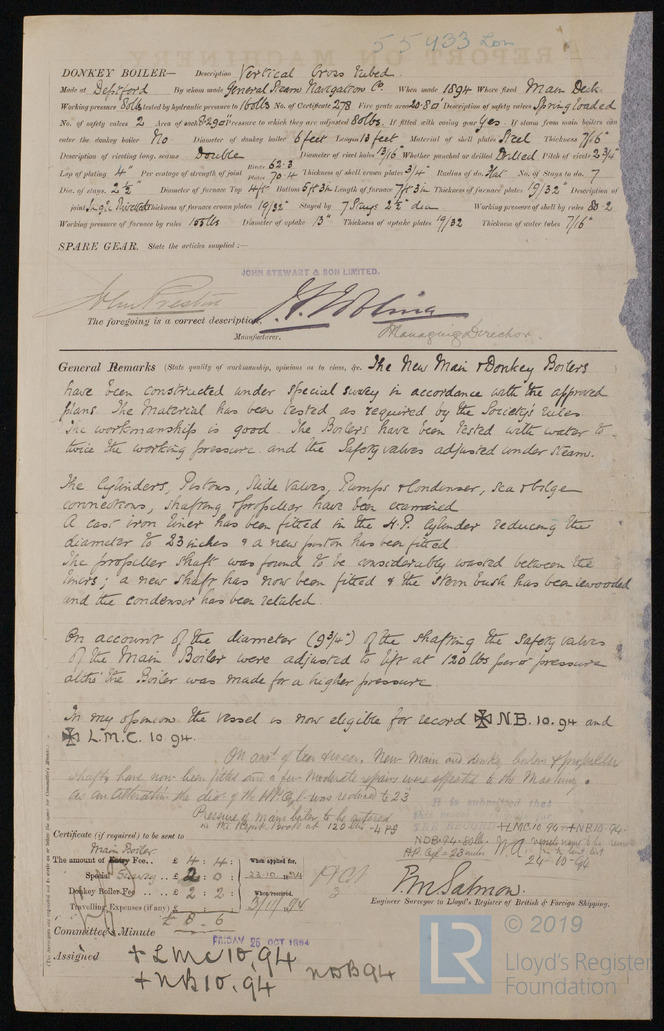 55933 Lon
DONKEY BOILER— Description Vertical Cross tubed
Made at Deptford By whom made General Steam Navigation Co. When made 1894 Where fixed Main Deck
Working pressure 80lbs tested by hydraulic pressure to 160lbs No. of Certificate 278 Fire grate area 20.80" Description of safety valves Spring loaded
No. of safety valves 2 Area of each 8290" Pressure to which they are adjusted 80lbs. If fitted with easing gear Yes. If steam from main boilers can
enter the donkey boiler No Diameter of donkey boiler 6 feet Length 13 feet Material of shell plates Steel Thickness 7/16"
Description of riveting long. seams Double Diameter of rivet holes 13/16" Whether punched or drilled Drilled Pitch of rivets 2 3/4"
Lap of plating 4" Per centage of strength of joint Rivets 62.3 Plates 70.4 Thickness of shell crown plates 3/4" Radius of do. flat No. of Stays to do. 7
Dia. of stays. 2 1/2" Diameter of furnace Top 4ft Bottom 5ft 3in Length of furnace 7ft 3in Thickness of furnace plates 19/32" Description of
joint Single Rivetted Thickness of furnace crown plates 19/32" Stayed by 7 Stays 2 1/2" dia Working pressure of shell by rules 80.2
Working pressure of furnace by rules 100lbs Diameter of uptake 13" Thickness of uptake plates 19/32 Thickness of water tubes 7/16"
SPARE GEAR. State the articles supplied:—
JOHN STEWART & SON LIMITED.
John Preston
The foregoing is a correct description,
Managing Director.
Manufacturer.
General Remarks (State quality of workmanship, opinions as to class, &c. The New Main & Donkey Boilers
have been constructed under special survey in accordance with the approved
plans. The Material has been tested as required by the Society's rules
The workmanship is good. The Boilers have been tested with water to
twice the working pressure and the Safety valves adjusted under steam.
The Cylinders, Pistons, Slide Valves, Pumps & Condenser, sea & bilge
connections, shafting & propellor have been examined
A cast iron liner has been fitted in the H.P. Cylinder reducing the
diameter to 23 inches & a new piston has been fitted
The propellor shaft was found to be considerably wasted between the
liners; a new shaft has now been fitted & the stern bush has been rewooded
and the condenser has been retubed.
On account of the diameter (9 3/4") of the shafting the Safety valves
of the Main Boiler were adjusted to lift at 120 lbs per □" pressure
altho' the Boiler was made for a higher pressure
In my opinion the vessel is now eligible for record ✠ N.B. 10.94 and
✠ L.M.C. 10.94.
New main and donkey boilers & propeller
shafts have now been fitted and a few moderate repairs were effected to the Machy.
As an alteration the dia. of the H.P. Cyl. was reduced to 23"
Pressure of main boiler to be entered
in the Regist. Book at 120 lbs
It is submitted that
+LMC 10.94 +NB 10.94
NDB.94-80lb.
H.P. Cyl = 23 inches
24-10-94
Certificate (if required) to be sent to
Main Boiler
The amount of Entry Fee.. £ 4 : 4 : When applied for,
Special Survey .. £ 2 : 0 : 23.10.1894
Donkey Boiler Fee .. £ 2 : 2 : When received,
Travelling Expenses (if any) £ : : 3/11/94
£ 8 . 6
P. M. Salmon.
Engineer Surveyor to Lloyd's Register of British & Foreign Shipping.
Committee's Minute
FRIDAY 26 OCT 1894
Assigned + LMC 10.94
+ NB 10.94 NDB 94
LR
© 2019
Lloyd's Register
Foundation